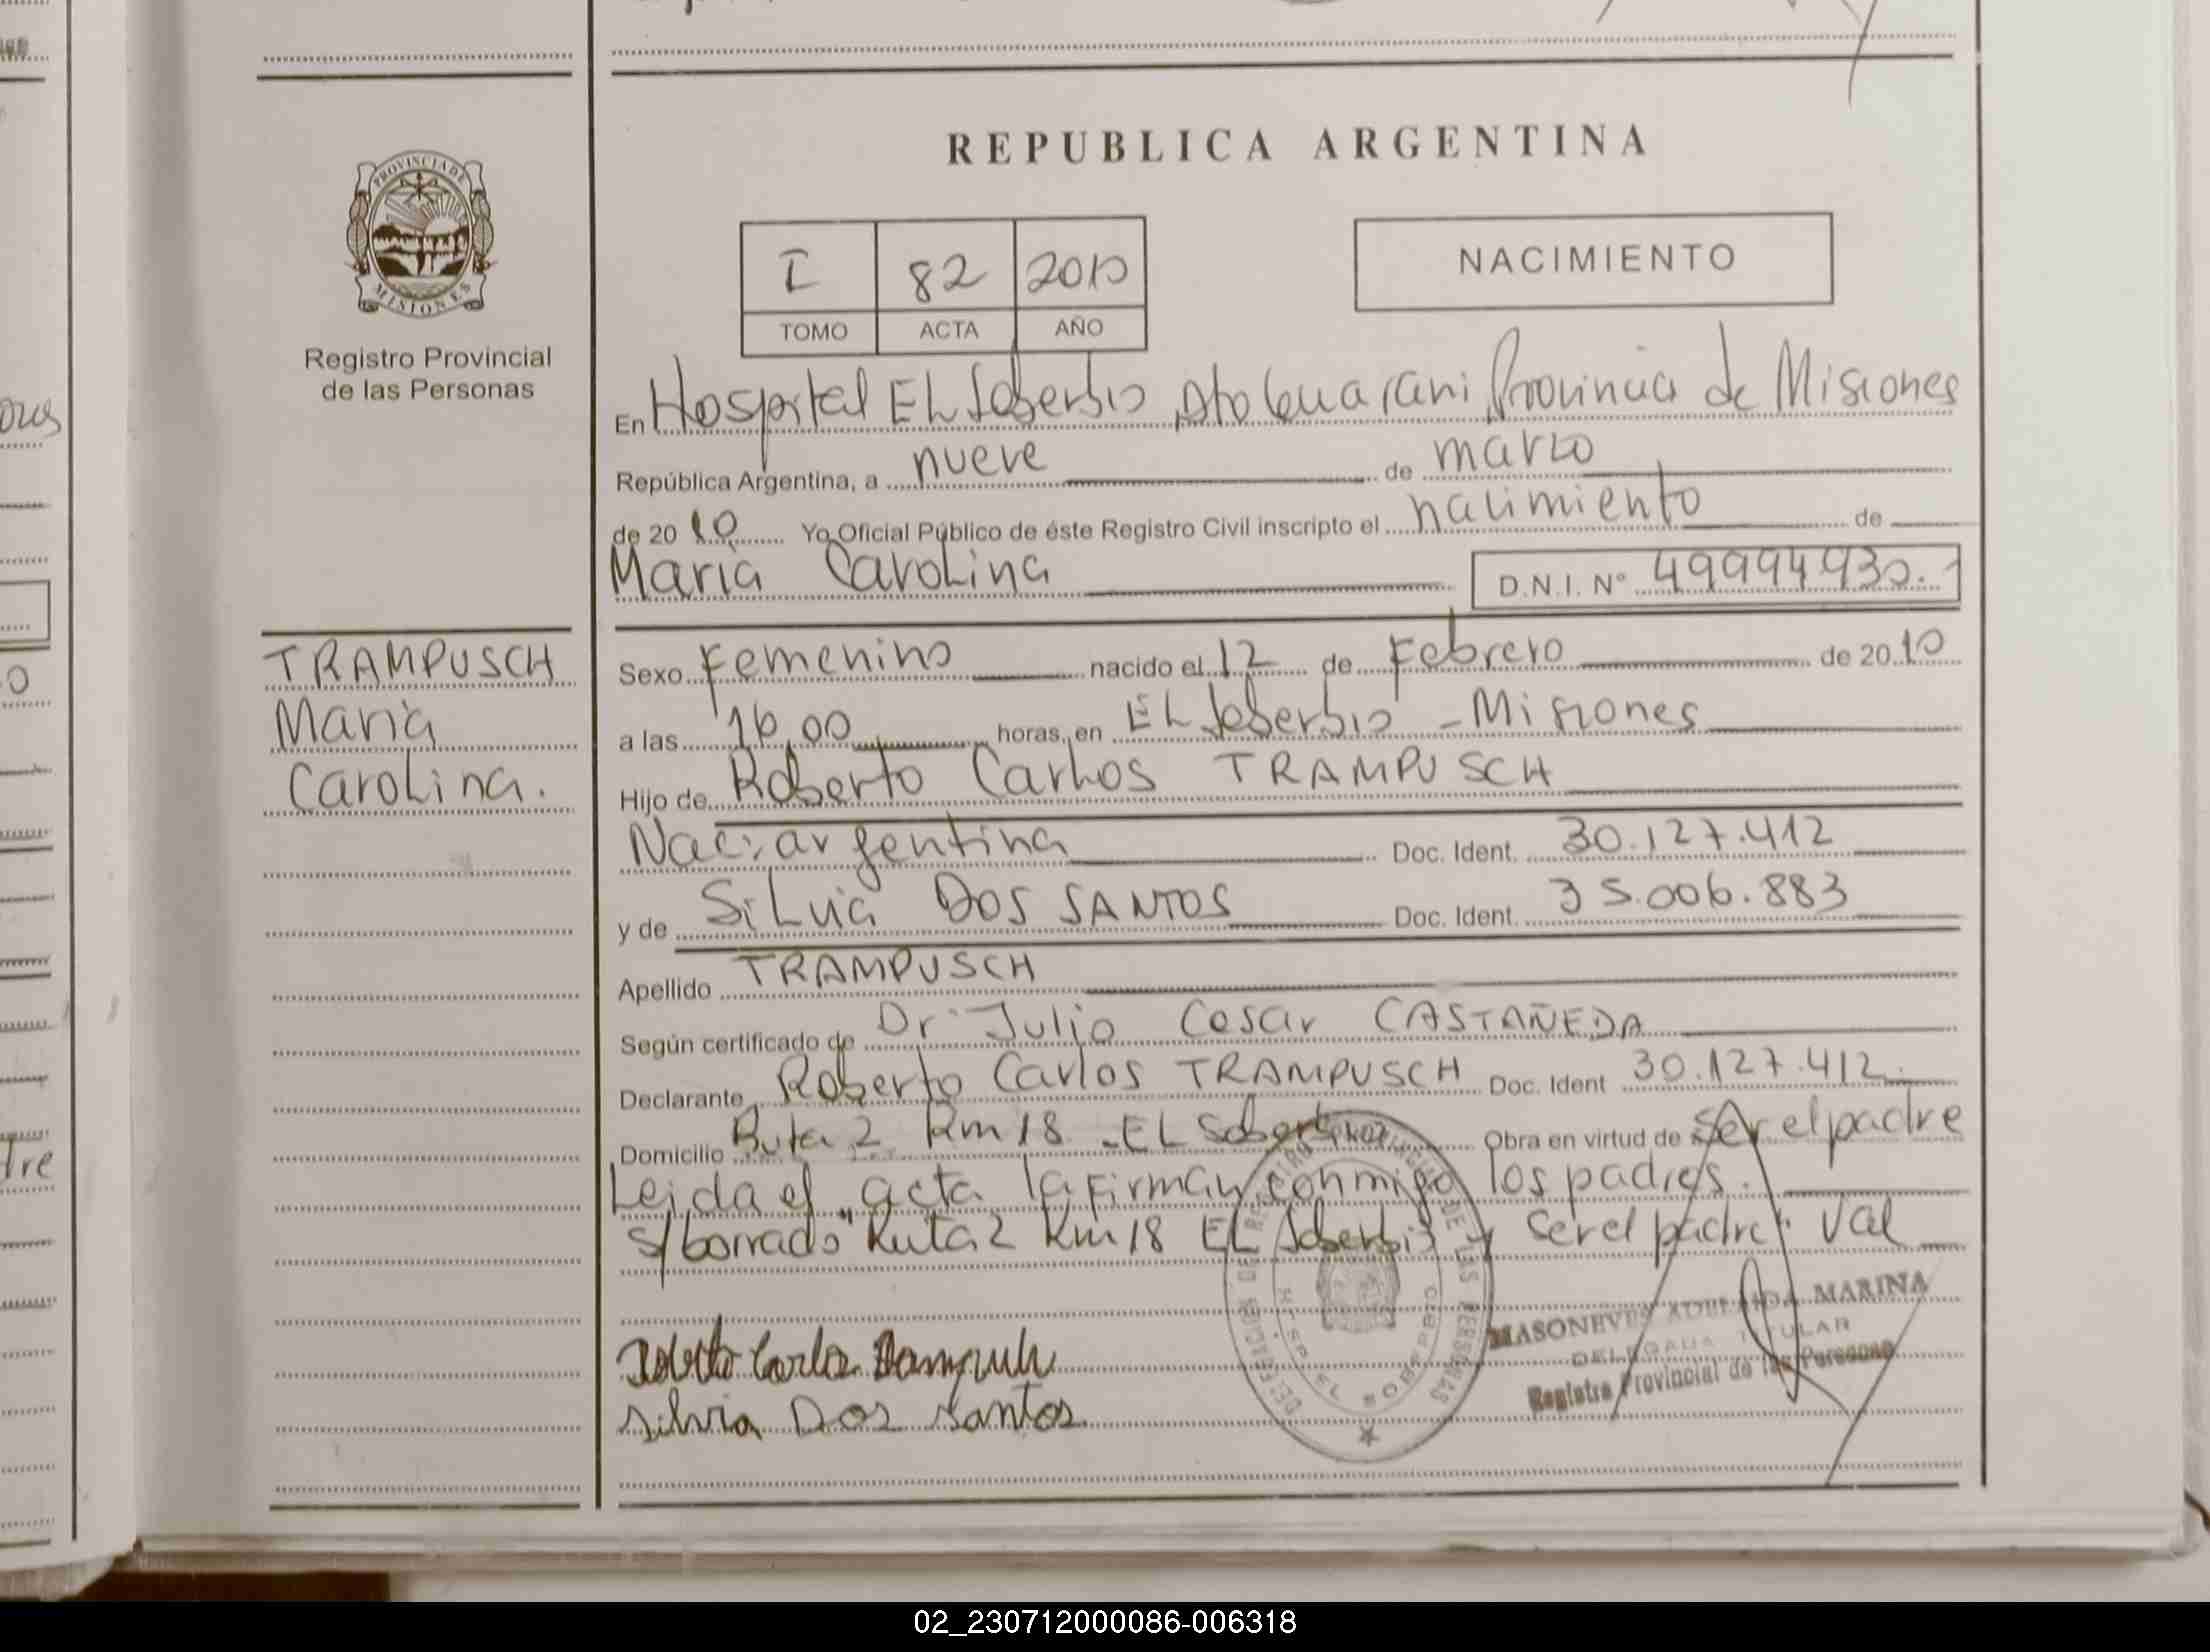 REPUBLICA ARGENTINA
PROVINCIA DE MISIONES
Registro Provincial
de las Personas
I 82 2010
TOMO ACTA AÑO
NACIMIENTO
En Hospital EL Soberbio, Dto Guarani Provincia de Misiones
República Argentina, a nueve de marzo
de 2010 Yo Oficial Público de éste Registro Civil inscripto el nacimiento de
Maria Carolina D.N.I. Nº 49994930.
TRAMPUSCH
Maria
Carolina.
Sexo Femenino nacido el 12 de Febrero de 2010
a las 16,00 horas, en EL Soberbio - Misiones
Hijo de Roberto Carlos TRAMPUSCH
Nac: argentina Doc. Ident. 30.127.412
y de Silvia DOS SANTOS Doc. Ident. 35.006.883
Apellido TRAMPUSCH
Según certificado de Dr. Julio Cesar CASTAÑEDA
Declarante Roberto Carlos TRAMPUSCH Doc. Ident 30.127.412.
Domicilio Ruta 2 Km 18 - EL Soberbio Obra en virtud de ser el padre
Leida el acta la firman conmigo los padres.
S/borrado "Ruta 2 Km 18 EL Soberbio y ser el padre" Val
MASONEVES ADELAIDA MARINA
DELEGADA TITULAR
Registro Provincial de las Personas
Roberto Carlos Trampusch
Silvia Dos Santos
02_230712000086-006318